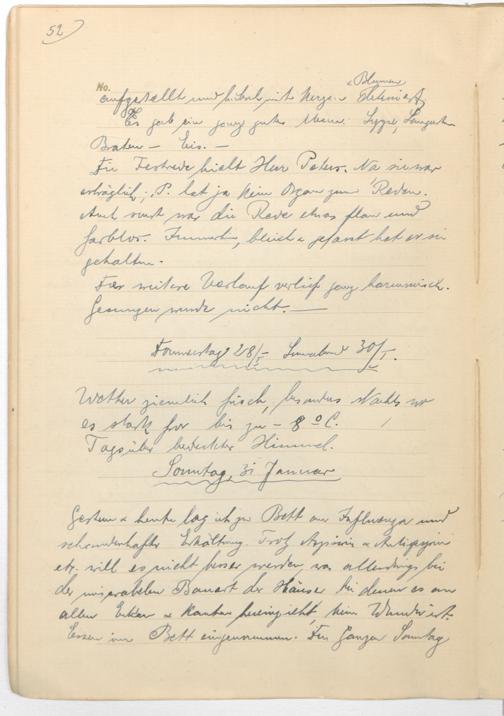 52
No.
aufgestellt und hübsch mit Kerzen & Blumen
Es gab ein ganz gutes Menu: Suppe, Languste
Braten – Eis. –
Die Festrede hielt Herr Peters. Na sie war
erträglich; P. hat ja kein Organ zum Reden.
Auch sonst war die Rede etwas flau und
farblos. Immerhin, bleich & gefasst hat er sie
gehalten.
Der weitere Verlauf verlief ganz harmonisch.
Gesungen wurde nicht. –
Donnerstag 28/I – Sonnabend 30/I.
Wetter ziemlich frisch, besonders Nachts wo
es stark fror bis zu – 8° C.
Tagsüber bedeckter Himmel.
Sonntag, 31 Januar
Gestern & heute lag ich zu Bett an Influenza und
schauderhafter Erkältung. Trotz Aspirin & Antipyrin
etc. will es nicht besser werden, was allerdings bei
der miserablen Bauart der Häuser bei denen es an
allen Ecken & Kanten hereinzieht, kein Wunder ist.
Essen im Bett eingenommen. Den ganzen Sonntag